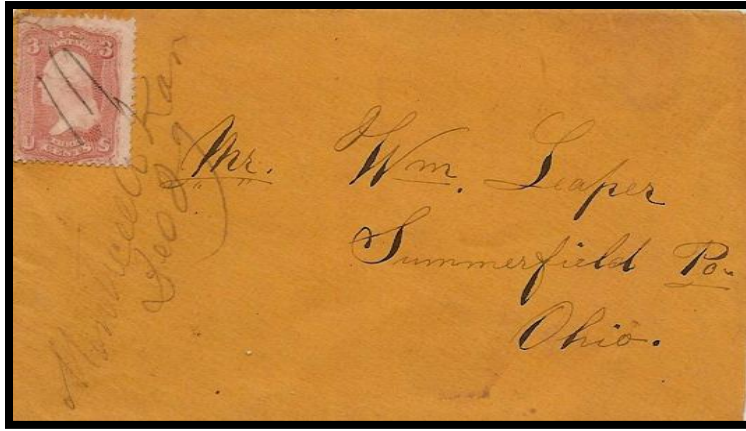 3 3
U S
CENTS
Monticello Kan
Dec 27
Mr. Wm. Leaper
Summerfield Po.
Ohio.